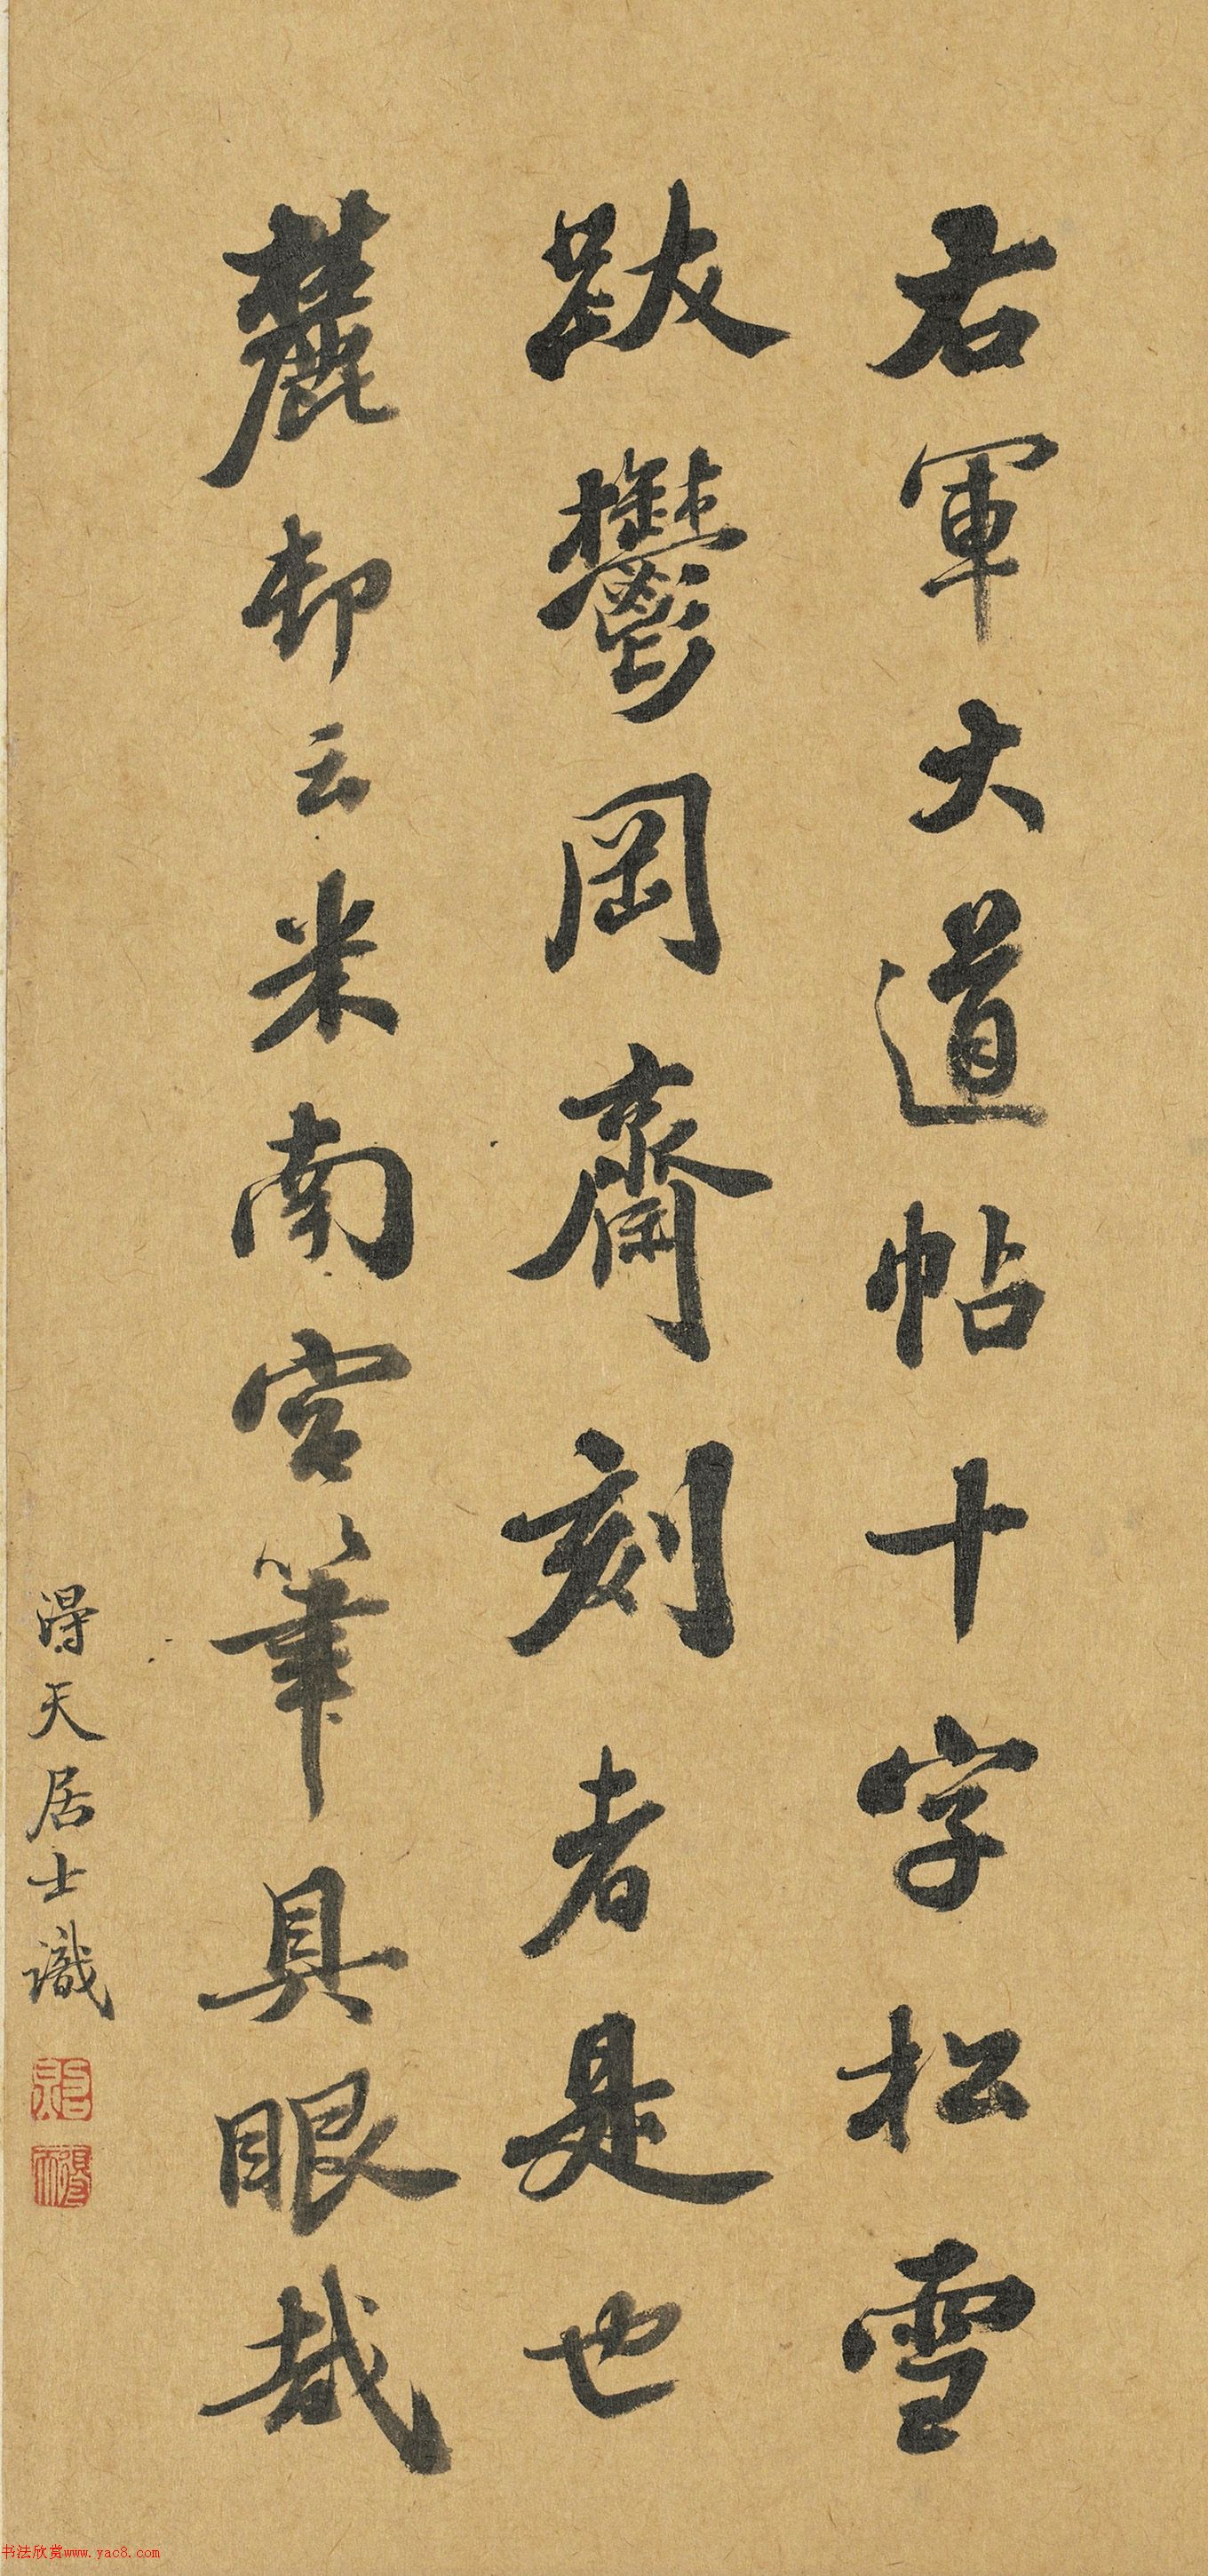 右軍大道帖十字松雪
跋鬱岡齋刻者是也
麓邨云米南宮筆具眼哉
得天居士識
书法欣赏www.yac8.com